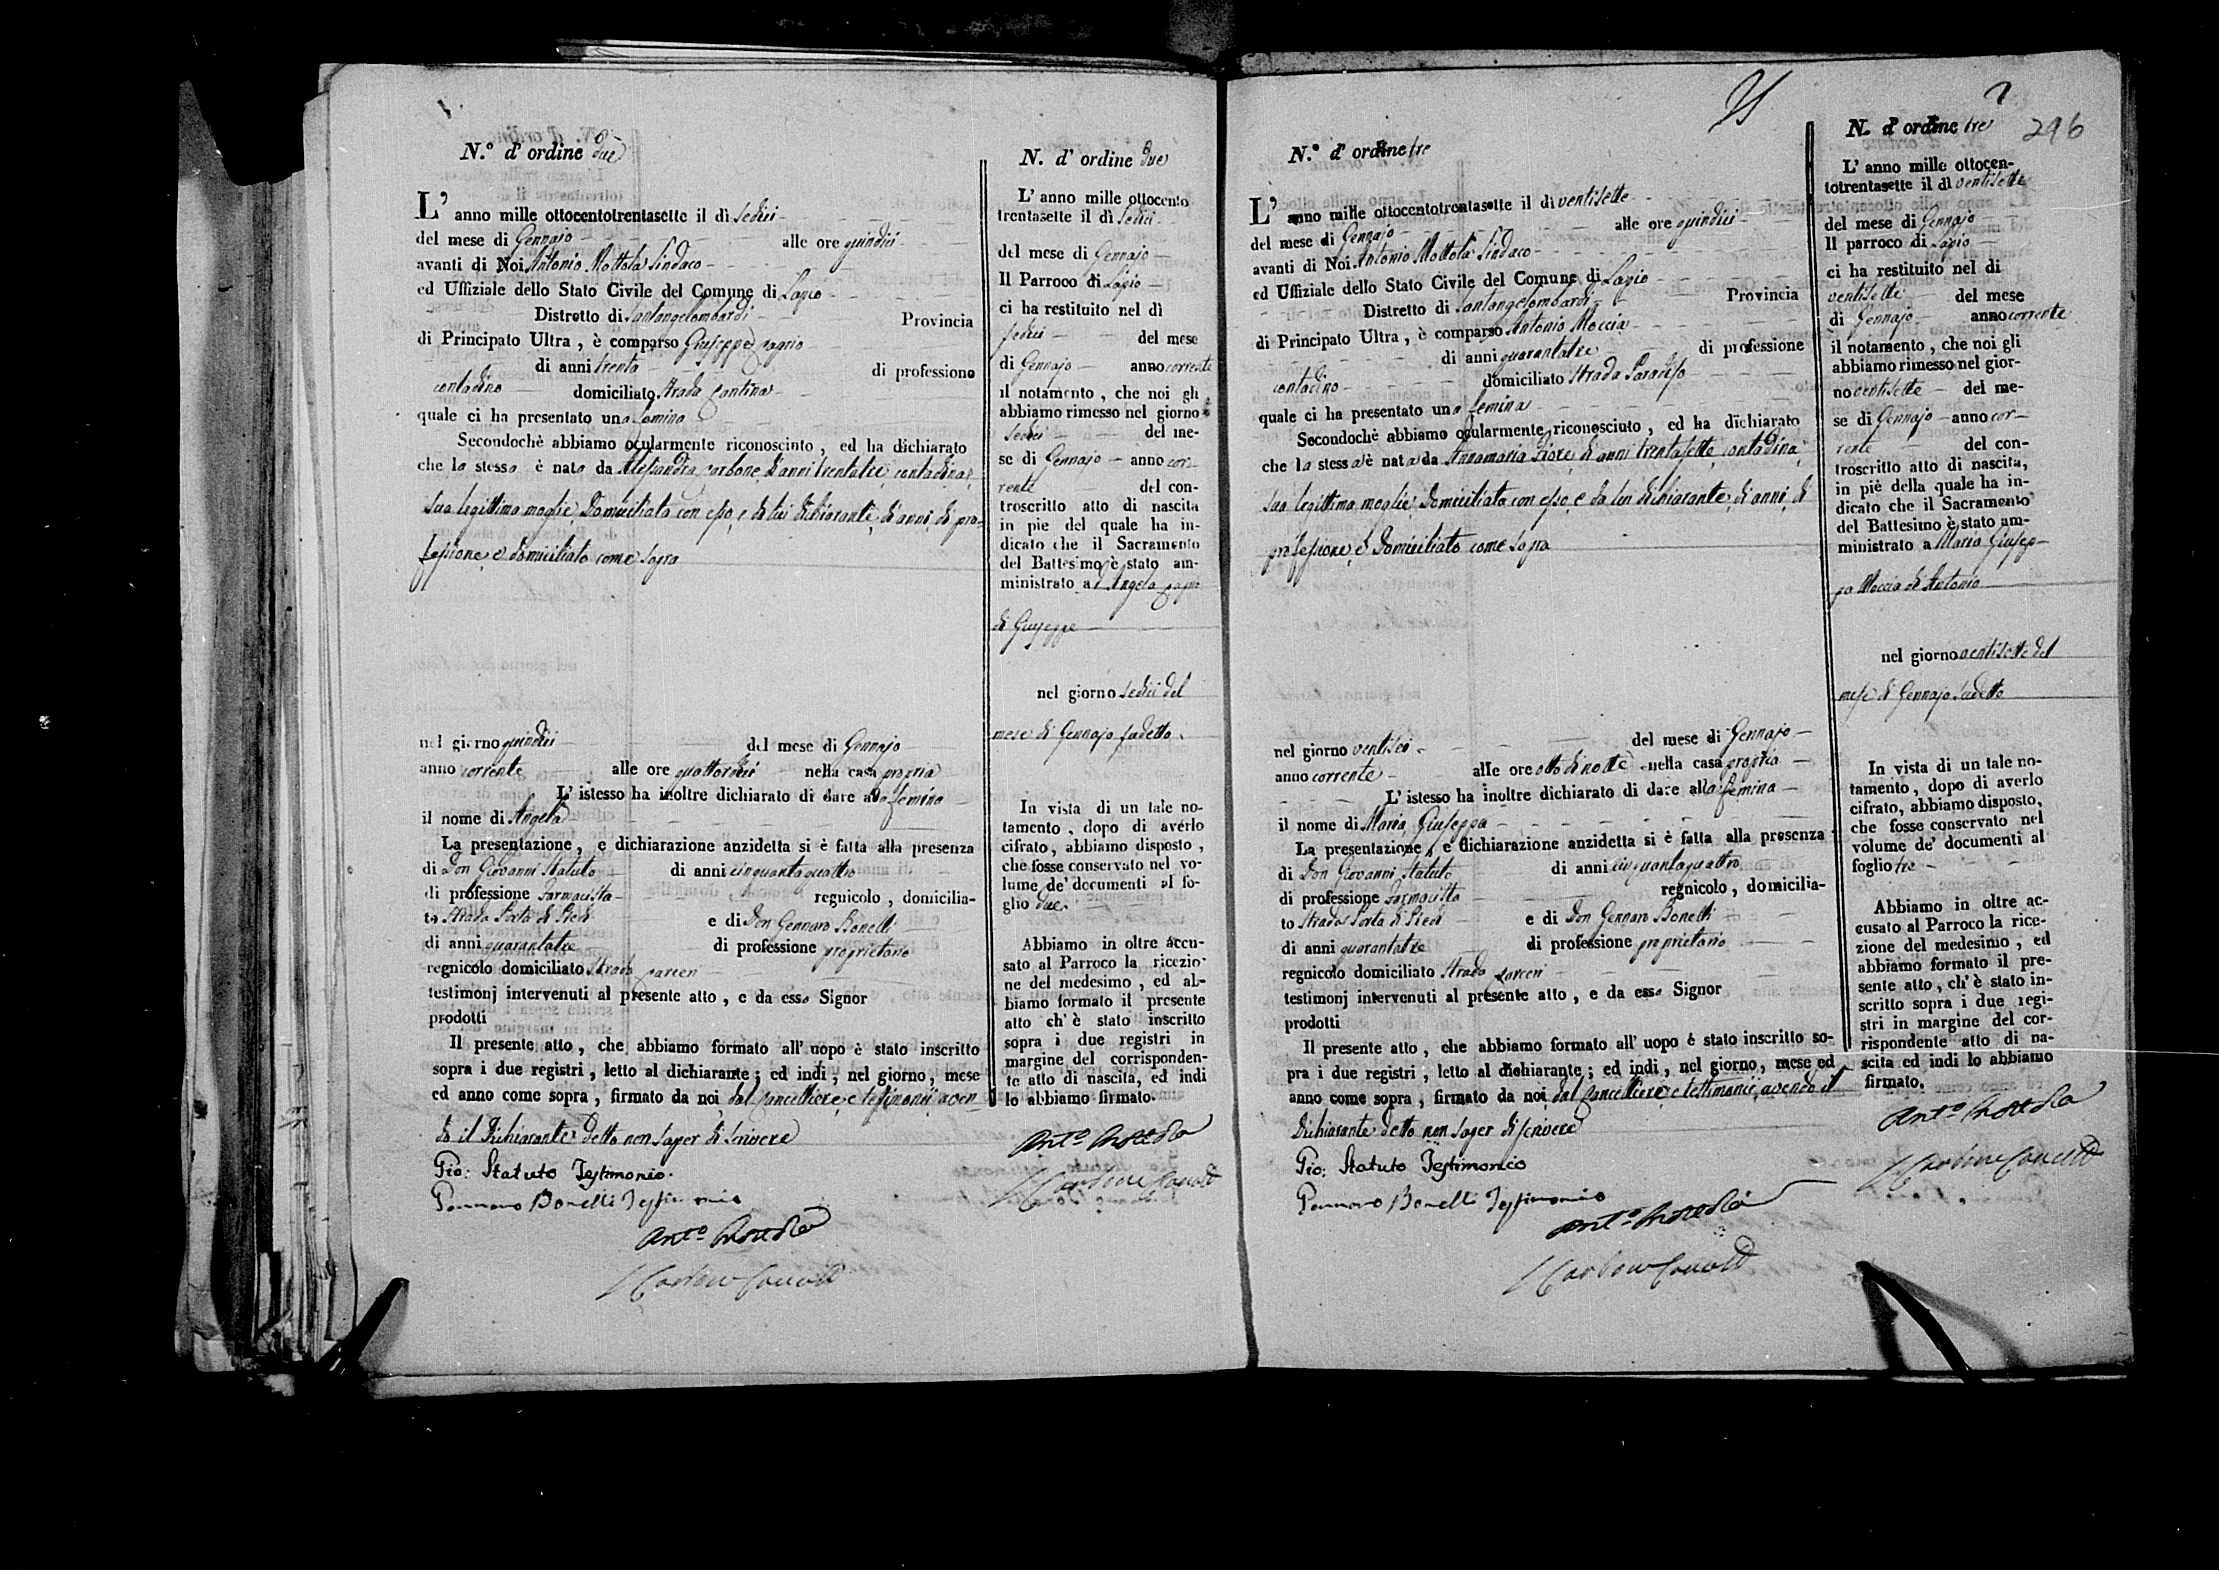 N.º d' ordine due
L' anno mille ottocentotrentasette il dì sedici
del mese di Gennajo alle ore quindici
avanti di Noi Antonio Mottola Sindaco
ed Uffiziale dello Stato Civile del Comune di Lapio
Distretto di Santangelombardi Provincia
di Principato Ultra, è comparso Giuseppe
di anni trenta di professione
contadino domiciliato Strada Cantina
quale ci ha presentato una femina
Secondochè abbiamo ocularmente riconosciuto, ed ha dichiarato
che la stessa è nata da Alesandra Carbone, di anni trentatre, contadina,
sua legittima moglie, domiciliata con esso, e da lui dichiarante, di anni, di pro-
fessione, e domiciliato come sopra
nel giorno quindici del mese di Gennajo
anno corrente alle ore quattordici nella casa propria
L' istesso ha inoltre dichiarato di dare alla femina
il nome di Angela
La presentazione, e dichiarazione anzidetta si è fatta alla presenza
di Don Giovanni Statuto di anni cinquantaquattro
di professione Farmacista regnicolo, domicilia-
to Strada Porta di Piedi e di Don Gennaro Bonelli
di anni quarantatre di professione proprietario
regnicolo domiciliato Strada Carceri
testimonj intervenuti al presente atto, e da esso Signor
prodotti
Il presente atto, che abbiamo formato all' uopo è stato inscritto
sopra i due registri, letto al dichiarante; ed indi, nel giorno, mese
ed anno come sopra, firmato da noi, dal Cancelliere, e testimonii aven-
do il Dichiarante detto non saper di scrivere
Gio: Statuto Testimonio.
Gennaro Bonelli Testimonio
Ant.º Mottola
Carbone
N. d' ordine due
L' anno mille ottocento
trentasette il dì sedici
del mese di Gennajo
Il Parroco di Lapio
ci ha restituito nel dì
sedici del mese
di Gennajo anno corrente
il notamento, che noi gli
abbiamo rimesso nel giorno
sedici del me-
se di Gennajo anno cor-
rente del con-
troscritto atto di nascita
in piè del quale ha in-
dicato che il Sacramento
del Battesimo è stato am-
ministrato a Angela
di Giuseppe
nel giorno sedici del
mese di Gennajo sudetto.
In vista di un tale no-
tamento, dopo di averlo
cifrato, abbiamo disposto,
che fosse conservato nel vo-
lume de' documenti al fo-
glio due.
Abbiamo in oltre accu-
sato al Parroco la ricezio-
ne del medesimo, ed ab-
biamo formato il presente
atto ch' è stato inscritto
sopra i due registri in
margine del corrisponden-
te atto di nascita, ed indi
lo abbiamo firmato.
Ant.º Mottola
Carbone
N.º d' ordine tre
L' anno mille ottocentotrentasette il dì ventisette
del mese di Gennajo alle ore quindici
avanti di Noi Antonio Mottola Sindaco
ed Uffiziale dello Stato Civile del Comune di Lapio
Distretto di Santangelombardi Provincia
di Principato Ultra, è comparso Antonio Moccia
di anni quarantatre di professione
contadino domiciliato Strada Paradiso
quale ci ha presentato una femina
Secondochè abbiamo ocularmente riconosciuto, ed ha dichiarato
che la stessa è nata da Annamaria Fiore, di anni trentasette, contadina,
sua legittima moglie, domiciliata con esso, e da lui dichiarante, di anni, di
professione, e domiciliato come sopra
nel giorno ventisei del mese di Gennajo
anno corrente alle ore otto di notte nella casa propria
L' istesso ha inoltre dichiarato di dare alla femina
il nome di Maria Giuseppa
La presentazione, e dichiarazione anzidetta si è fatta alla presenza
di Don Giovanni Statuto di anni cinquantaquattro
di professione Farmacista regnicolo, domicilia-
to Strada Porta di Piedi e di Don Gennaro Bonelli
di anni quarantatre di professione proprietario
regnicolo domiciliato Strada Carceri
testimonj intervenuti al presente atto, e da esso Signor
prodotti
Il presente atto, che abbiamo formato all' uopo è stato inscritto so-
pra i due registri, letto al dichiarante; ed indi, nel giorno, mese ed
anno come sopra, firmato da noi, dal Cancelliere, e testimonii, avendo il
Dichiarante detto non saper di scrivere
Gio: Statuto Testimonio
Gennaro Bonelli Testimonio
Ant.º Mottola
Carbone
296
N. d' ordine tre
L' anno mille ottocen-
totrentasette il dì ventisette
del mese di Gennajo
Il parroco di Lapio
ci ha restituito nel di
ventisette del mese
di Gennajo anno corrente
il notamento, che noi gli
abbiamo rimesso nel gior-
no ventisette del me-
se di Gennajo anno cor-
rente del con-
troscritto atto di nascita,
in piè della quale ha in-
dicato che il Sacramento
del Battesimo è stato am-
ministrato a Maria Giusep-
pa Moccia di Antonio
nel giorno ventisette del
mese di Gennajo sudetto
In vista di un tale no-
tamento, dopo di averlo
cifrato, abbiamo disposto,
che fosse conservato nel
volume de' documenti al
foglio tre
Abbiamo in oltre ac-
cusato al Parroco la rice-
zione del medesimo, ed
abbiamo formato il pre-
sente atto, ch' è stato in-
scritto sopra i due regi-
stri in margine del cor-
rispondente atto di na-
scita ed indi lo abbiamo
firmato.
Ant.º Mottola
Carbone